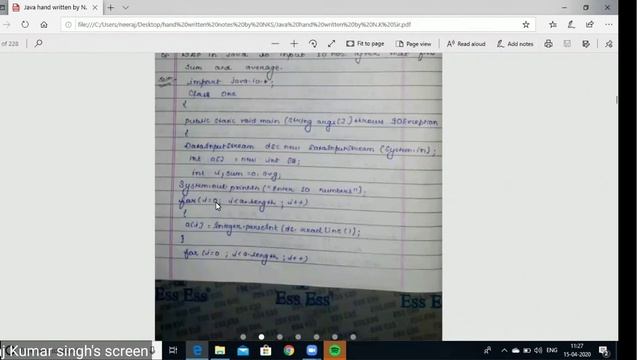 Java hand written by N.
file:///C:/Users/neeraj/Desktop/hand written notes by NKS/Java hand written by N.K Sir.pdf
of 228
Fit to page
Page view
Read aloud
Add notes
in Java to input 10 nos after that find
Sum and average.
import java.io.*;
Class One
{
public static void main (String args[]) throws IOException
{
DataInputStream ds= new DataInputStream (System.in);
int a[] = new int
int i, sum=0, avg;
System.out.println ("Enter 10 numbers");
for (i=0; i<a.length ; i++)
{
a[i] = Integer.parseInt (ds.readLine());
}
for (i=0 ; i<a.length ; i++)
Ess Ess
Ess Ess
Ess
j Kumar singh's screen
11:27
15-04-2020